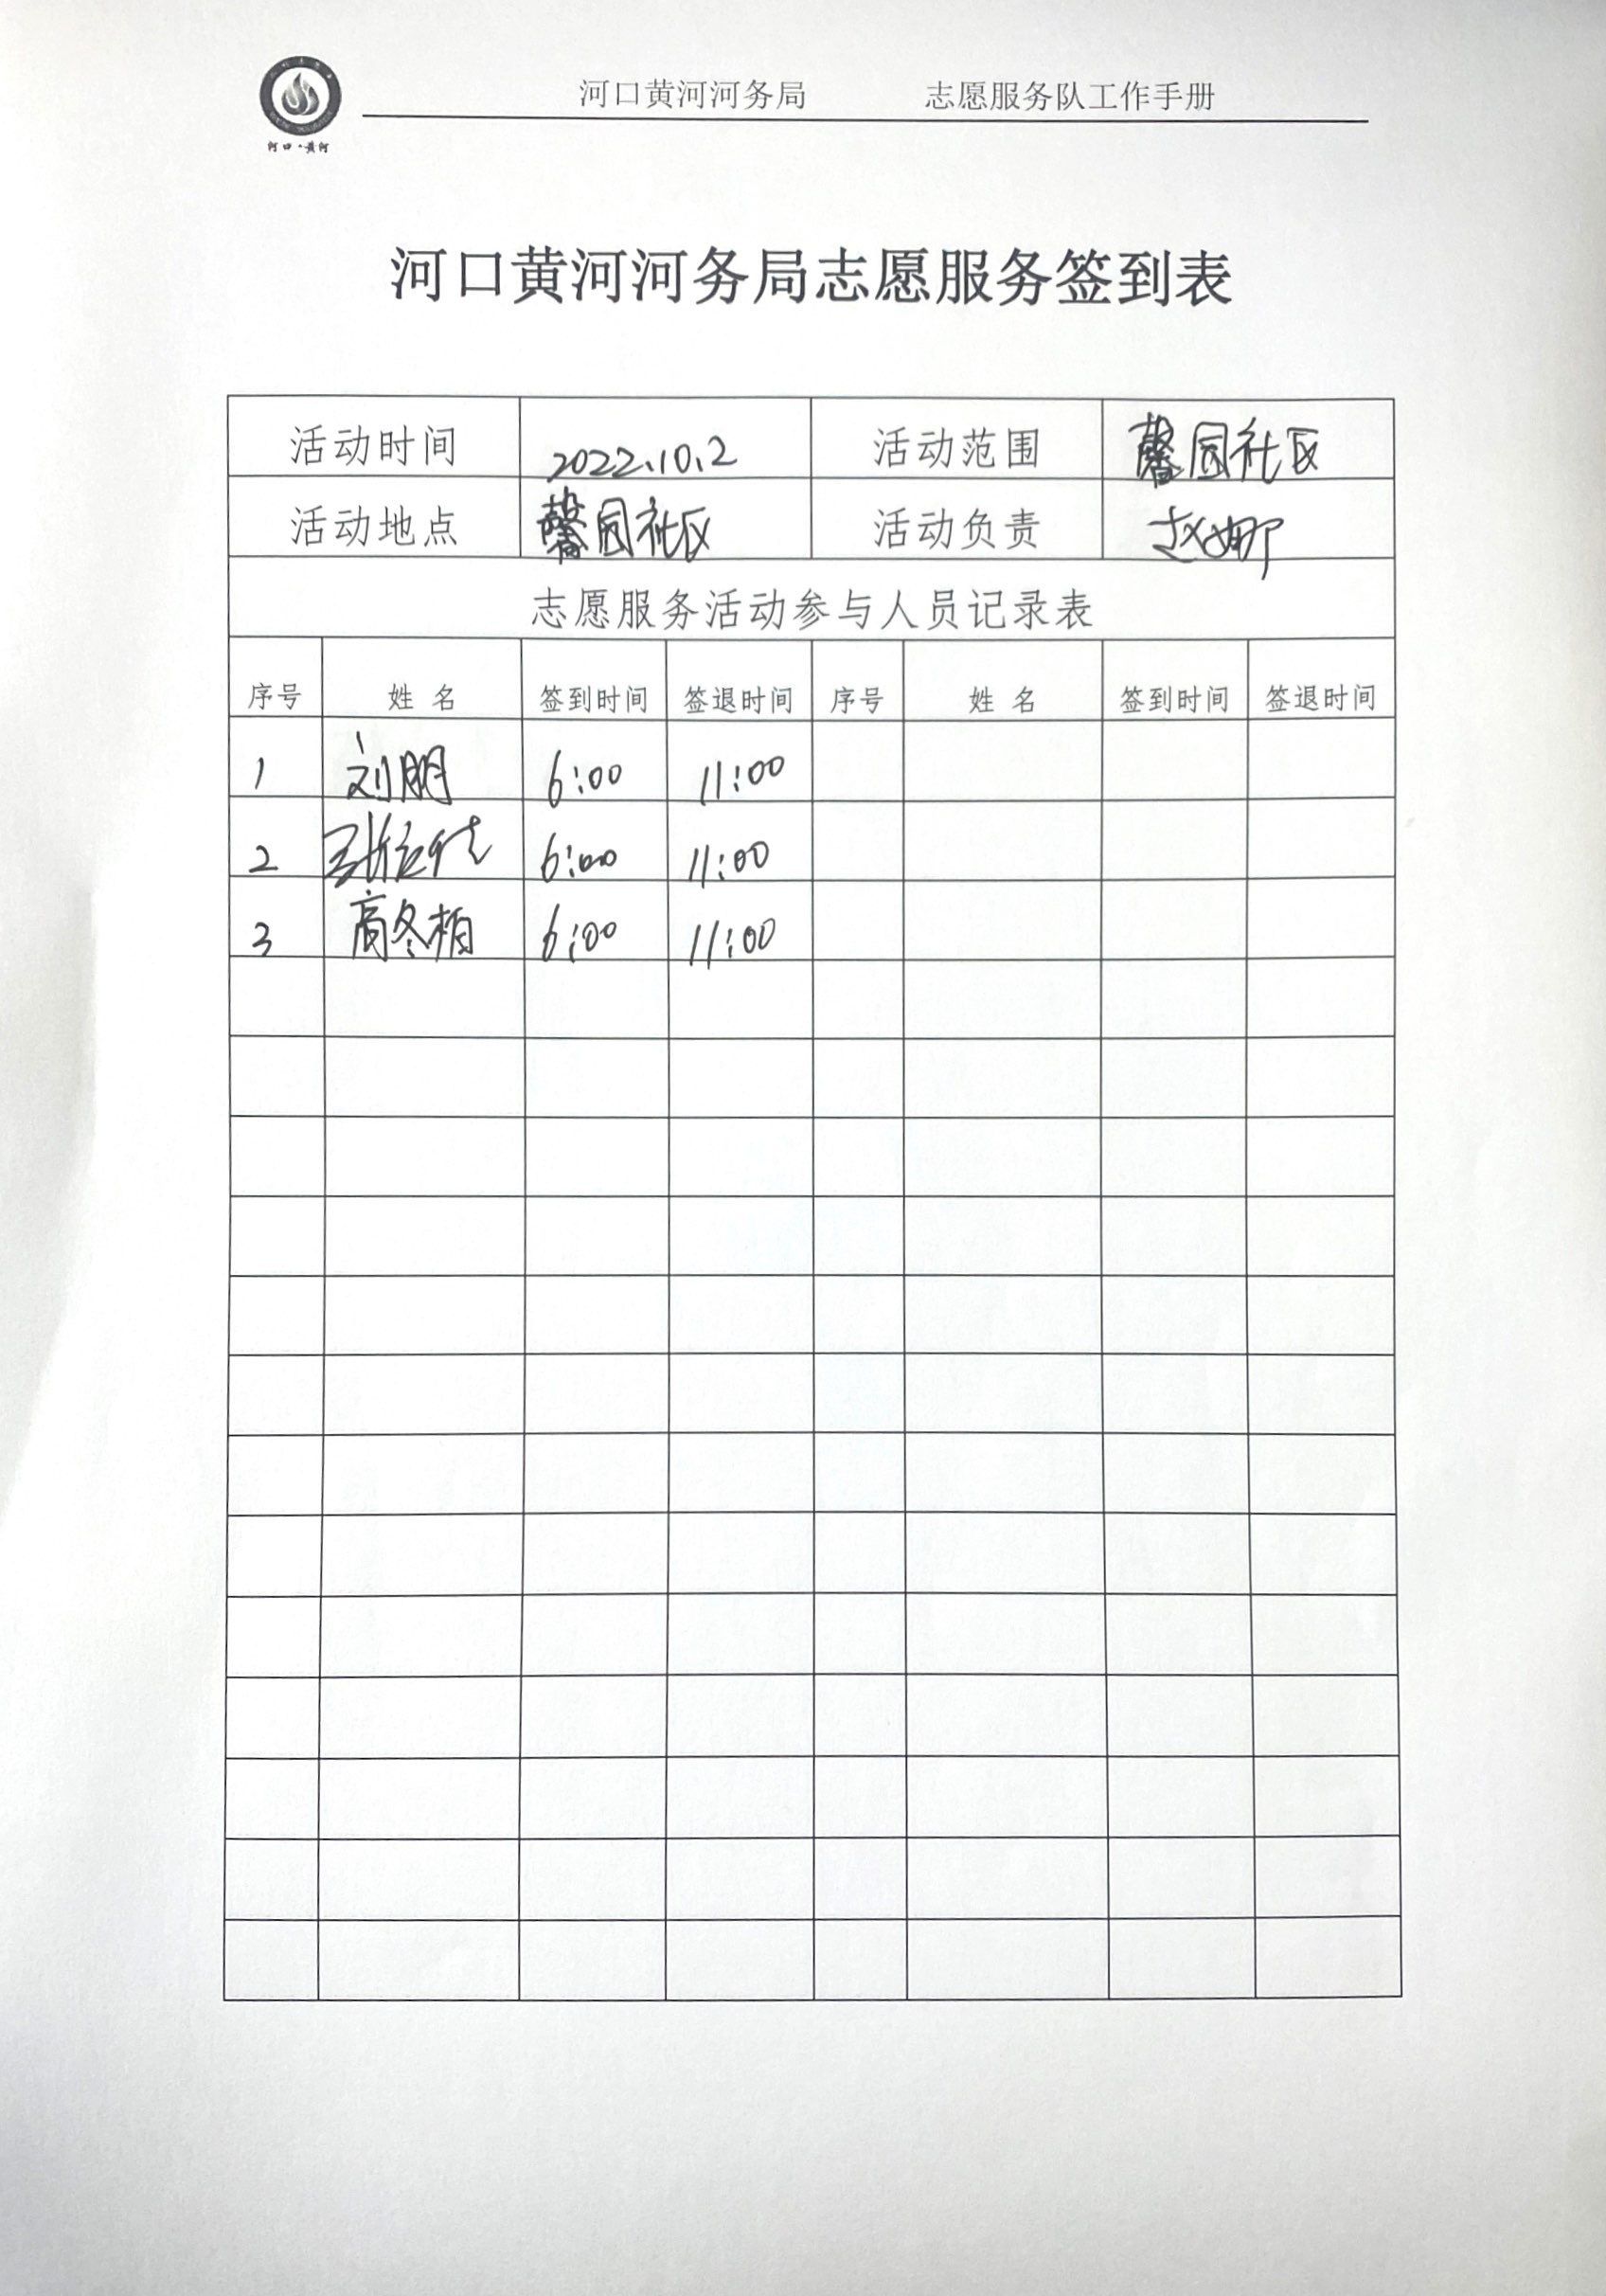 河口·黄河
河口黄河河务局 志愿服务队工作手册
河口黄河河务局志愿服务签到表
活动时间 2022.10.2 活动范围 馨园社区
活动地点 馨园社区 活动负责 赵娜
志愿服务活动参与人员记录表
序号 姓 名 签到时间 签退时间 序号 姓 名 签到时间 签退时间
1 刘朋 6:00 11:00
2 6:00 11:00
3 高冬柏 6:00 11:00